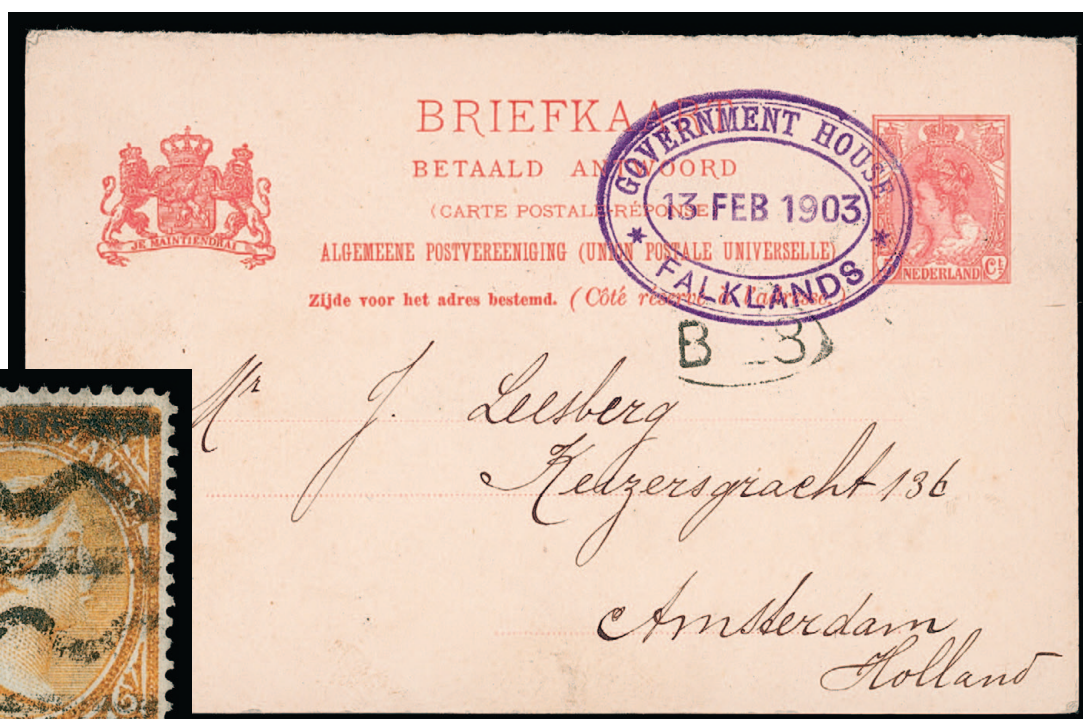 BRIEFKAART
BETAALD ANTWOORD
(CARTE POSTALE-RÉPONSE)
ALGEMEENE POSTVEREENIGING (UNION POSTALE UNIVERSELLE)
Zijde voor het adres bestemd. (Côté réservé à l'adresse.)
JE MAINTIENDRAI
GOVERNMENT HOUSE
13 FEB 1903
* FALKLANDS *
NEDERLAND C 2½
B 3
Mr J. Leesberg
Keizersgracht 136
Amsterdam
Holland